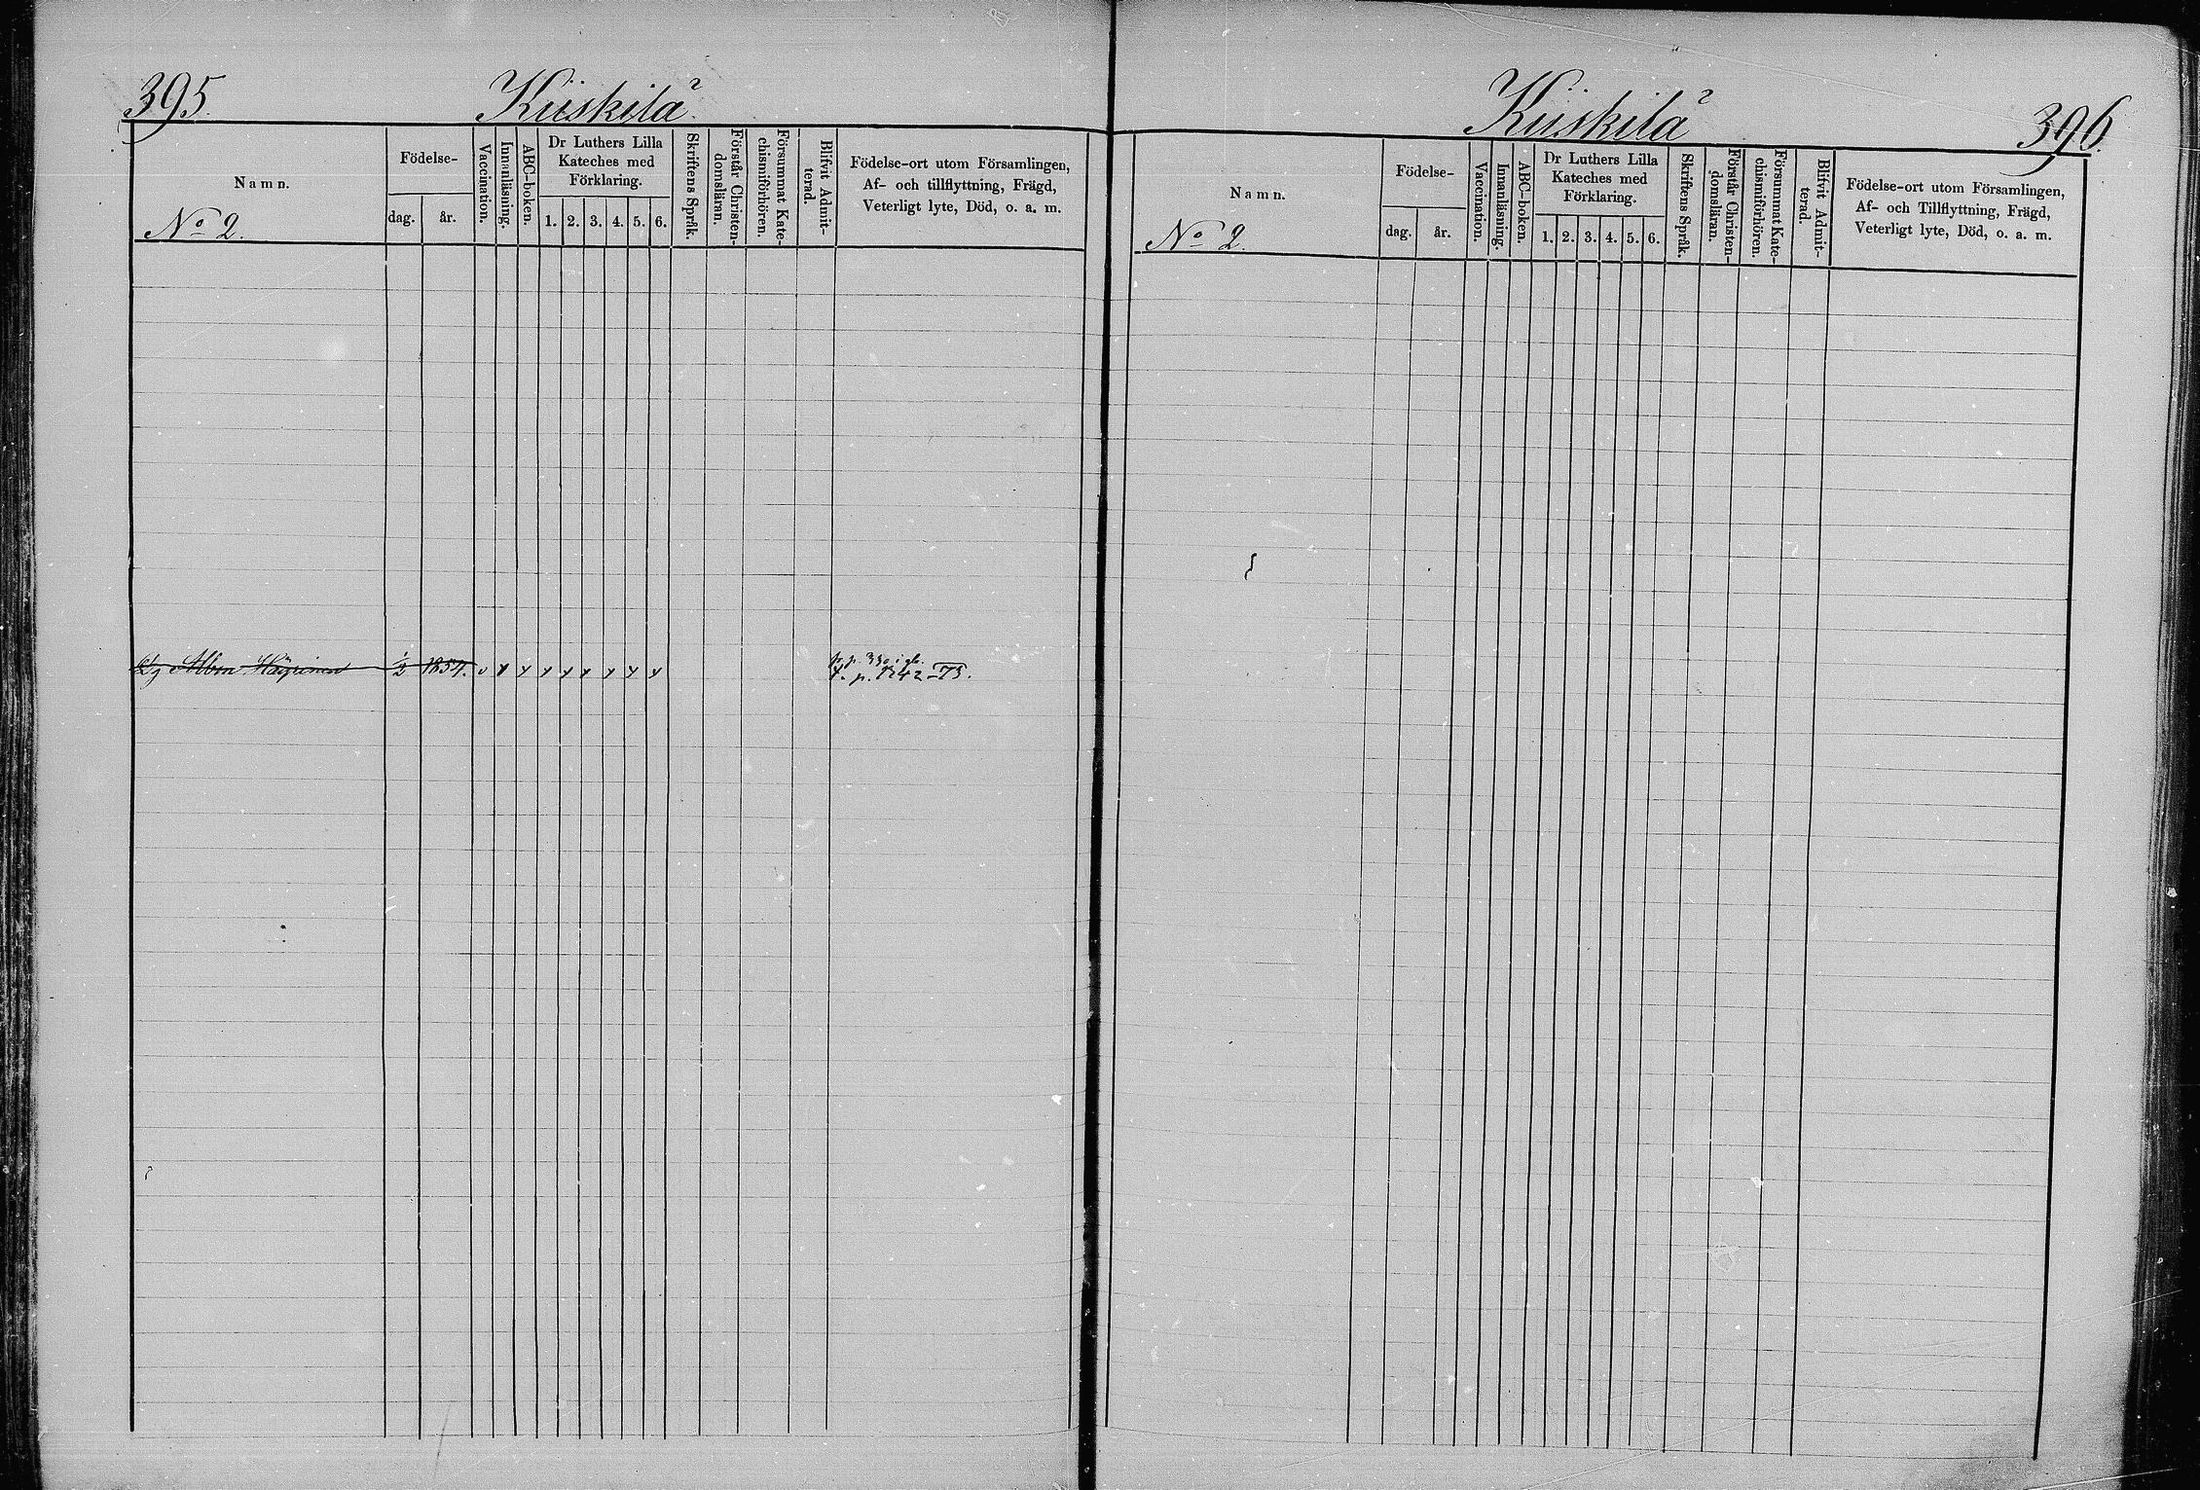 395.
Kiiskilä
Namn.
Födelse-
dag.
år.
Vaccination.
Innanläsning.
ABC-boken.
Dr Luthers Lilla
Kateches med
Förklaring.
1. 2. 3. 4. 5. 6.
Skriftens Språk.
Förstår Christen-
domsläran.
Försummat Kate-
chismiförhören.
Blifvit Admit-
terad.
Födelse-ort utom Församlingen,
Af- och tillflyttning, Frägd,
Veterligt lyte, Död, o. a. m.
No 2.
Albin Häyrinen 1/2 1854.
p. 1242 -73.
Kiiskilä
396.
Namn.
Födelse-
dag.
år.
Vaccination.
Innanläsning.
ABC-boken.
Dr Luthers Lilla
Kateches med
Förklaring.
1. 2. 3. 4. 5. 6.
Skriftens Språk.
Förstår Christen-
domsläran.
Försummat Kate-
chismiförhören.
Blifvit Admit-
terad.
Födelse-ort utom Församlingen,
Af- och Tillflyttning, Frägd,
Veterligt lyte, Död, o. a. m.
No 2.